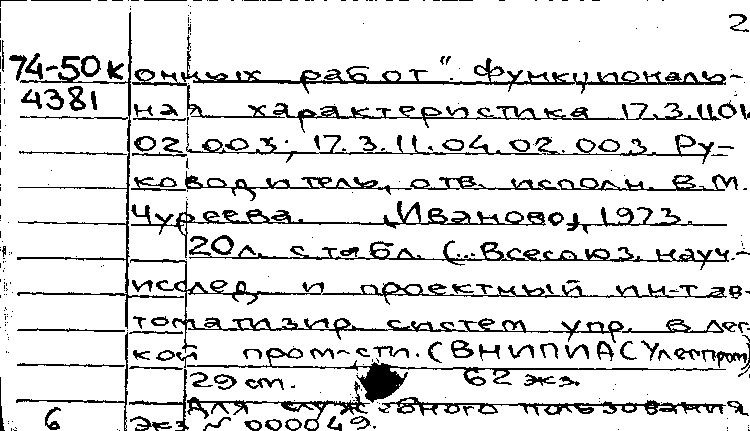 2
74-50к онных работ". Функциональ-
4381 ная характеристика 17.3.11.01.
02.003; 17.3.11.04.02.003. Ру-
ководитель, отв. исполн. В.М.
Чуреева. [Иваново], 1973.
20л. с табл. (..Всесоюз. науч.-
исслед. и проектный ин-т ав-
томатизир. систем упр. в лег-
кой пром-сти. (ВНИПИАСУлегпром)
29 см. 62 экз.
Для служебного пользования
6 Экз № 000049.